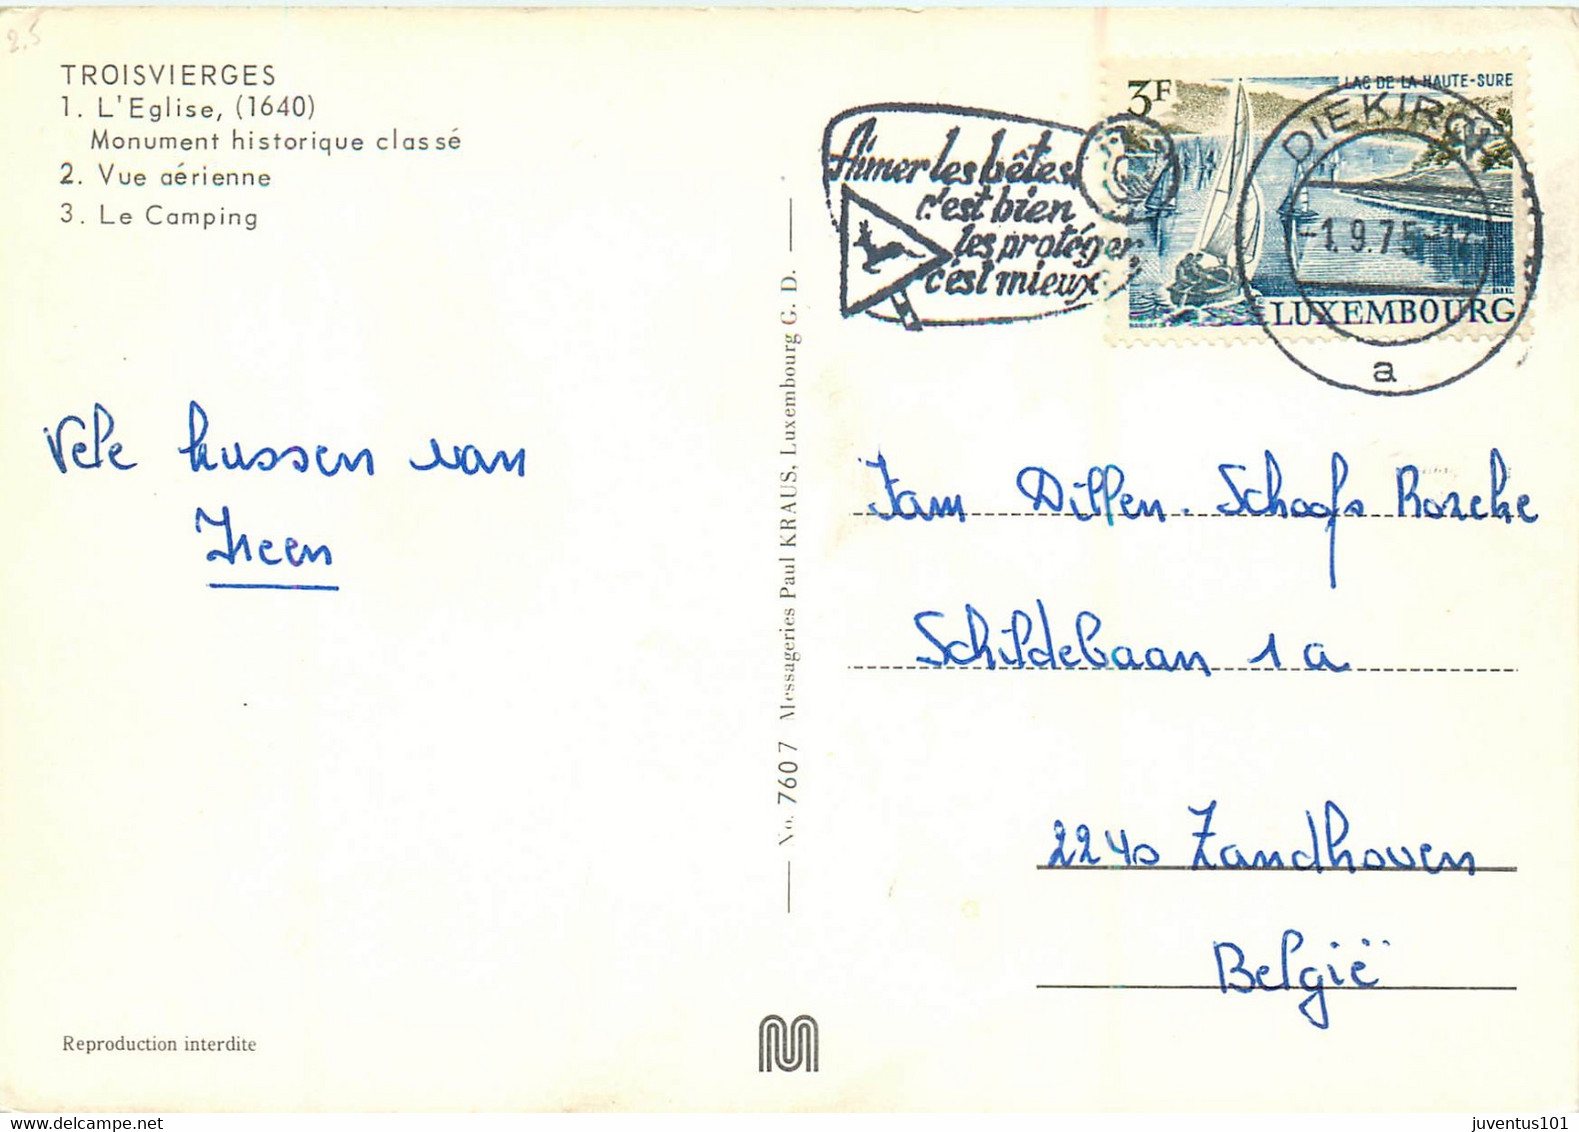 2.5
TROISVIERGES
1. L'Eglise, (1640)
Monument historique classé
2. Vue aérienne
3. Le Camping
Aimer les bêtes
c'est bien
les protéger
c'est mieux
3F
LAC DE LA HAUTE-SURE
LUXEMBOURG
DIEKIRCH
-1.9.75-
a
Vele kussen van
Ireen
No. 7607 Messageries Paul KRAUS, Luxembourg G. D.
Fam Dillen-Schoofs Roscke
Schildebaan 1a
2240 Zandhoven
België
Reproduction interdite
juventus101